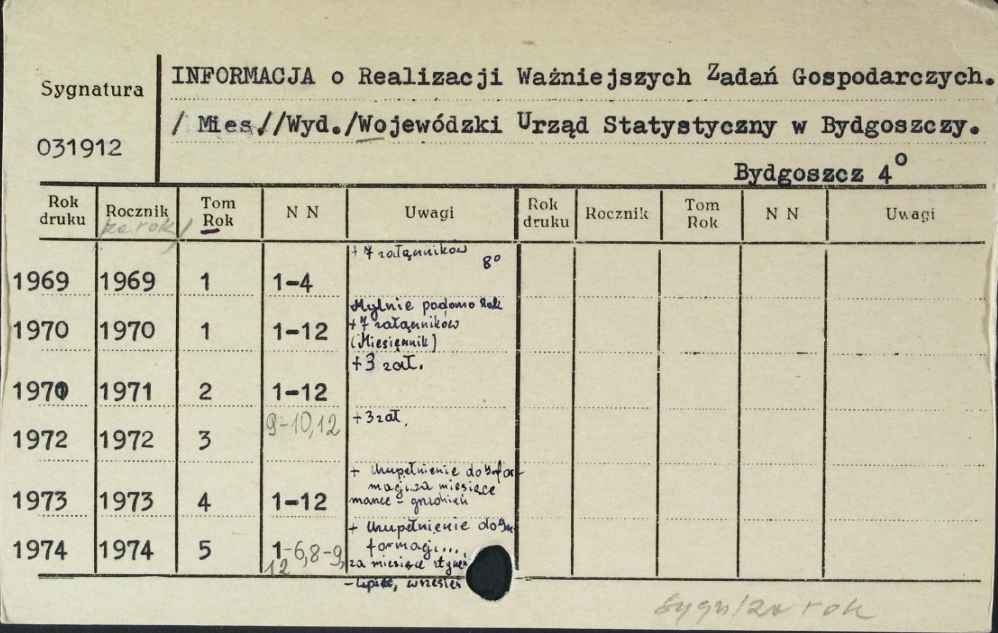 Sygnatura
031912
INFORMACJA o Realizacji Ważniejszych Zadań Gospodarczych.
/ Mies.//Wyd./Wojewódzki Urząd Statystyczny w Bydgoszczy.
Bydgoszcz 4°
Rok druku Rocznik /za rok/ Tom Rok N N Uwagi Rok druku Rocznik Tom Rok N N Uwagi
+ 7 załączników 8°
1969 1969 1 1-4
Mylnie podano Rok
1970 1970 1 1-12 +7 załączników
(Miesięcznik)
+3 zał.
1971 1971 2 1-12
9-10,12 +3 zał.
1972 1972 3
+ Uzupełnienie do Infor-
macji za miesiące
1973 1973 4 1-12 marzec - grudzień
+ Uzupełnienie do In
formacji...
1974 1974 5 1-6,8-9, 12 za miesiące stycz
-lipiec, wrzesień
Sygn/za rok